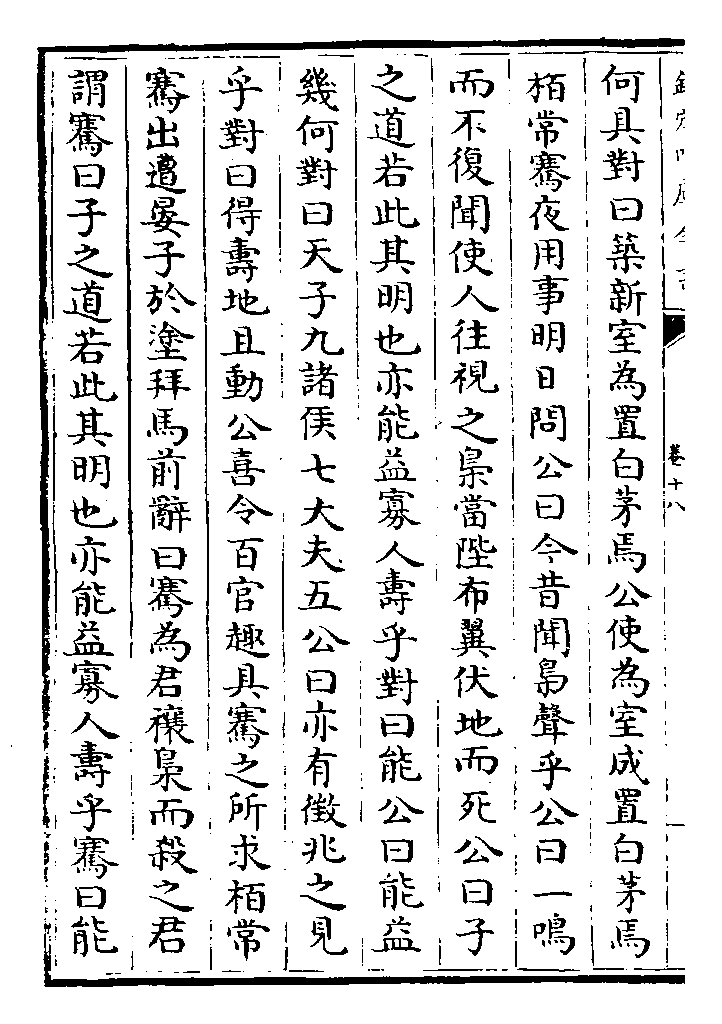 何具對曰築新室為置白茅焉公使為室成置白茅焉
栢常騫夜用事明日問公曰今昔聞梟聲乎公曰一鳴
而不復聞使人往視之梟當陛布翼伏地而死公曰子
之道若此其明也亦能益寡人壽乎對曰能公曰能益
幾何對曰天子九諸侯七大夫五公曰亦有徴兆之見
乎對曰得壽地且動公喜令百官趣具騫之所求栢常
騫出遭晏子於塗拜馬前辭曰騫為君禳梟而殺之君
謂騫曰子之道若此其明也亦能益寡人壽乎騫曰能
卷十八